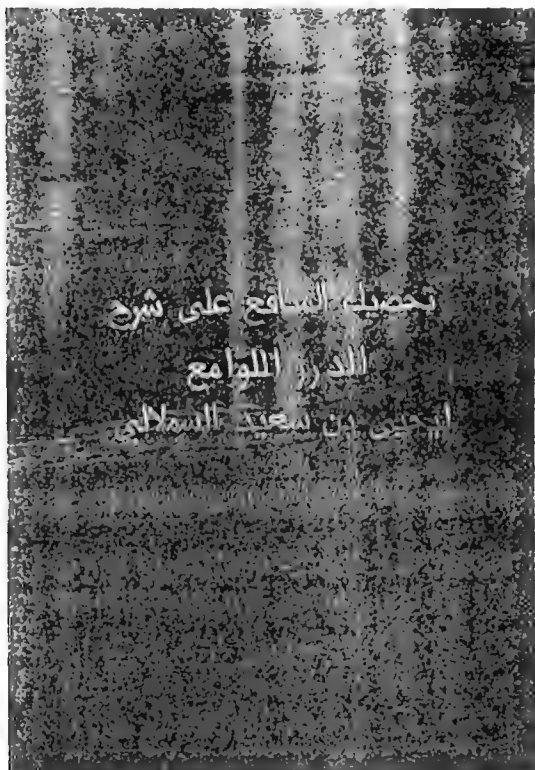 تحصيل المنافع على شرح
الدرر اللوامع
ليحيى بن سعيد السملالي